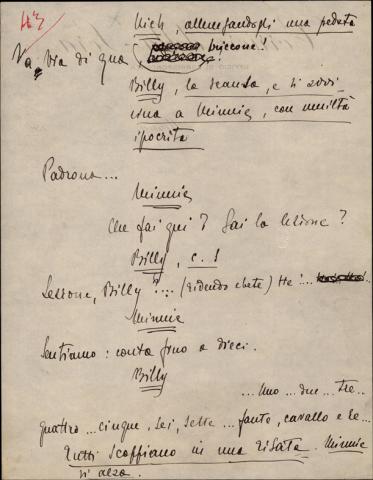 43
Nick, allungandogli una pedata
Va via di qua, briccone!
Billy, lo scansa, e si avvi-
cina a Minnie, con umiltà
ipocrita
Padrona...
Minnie
Che fai qui? Sai la lezione?
Billy, c. s
Lezione, Billy?... (ridendo ebete) He!...
Minnie
Sentiamo: conta fino a dieci.
Billy
...Uno...due...tre...
quattro...cinque, sei, sette...fante, cavallo e re...
Tutti scoppiano in una risata. Minnie
si alza.